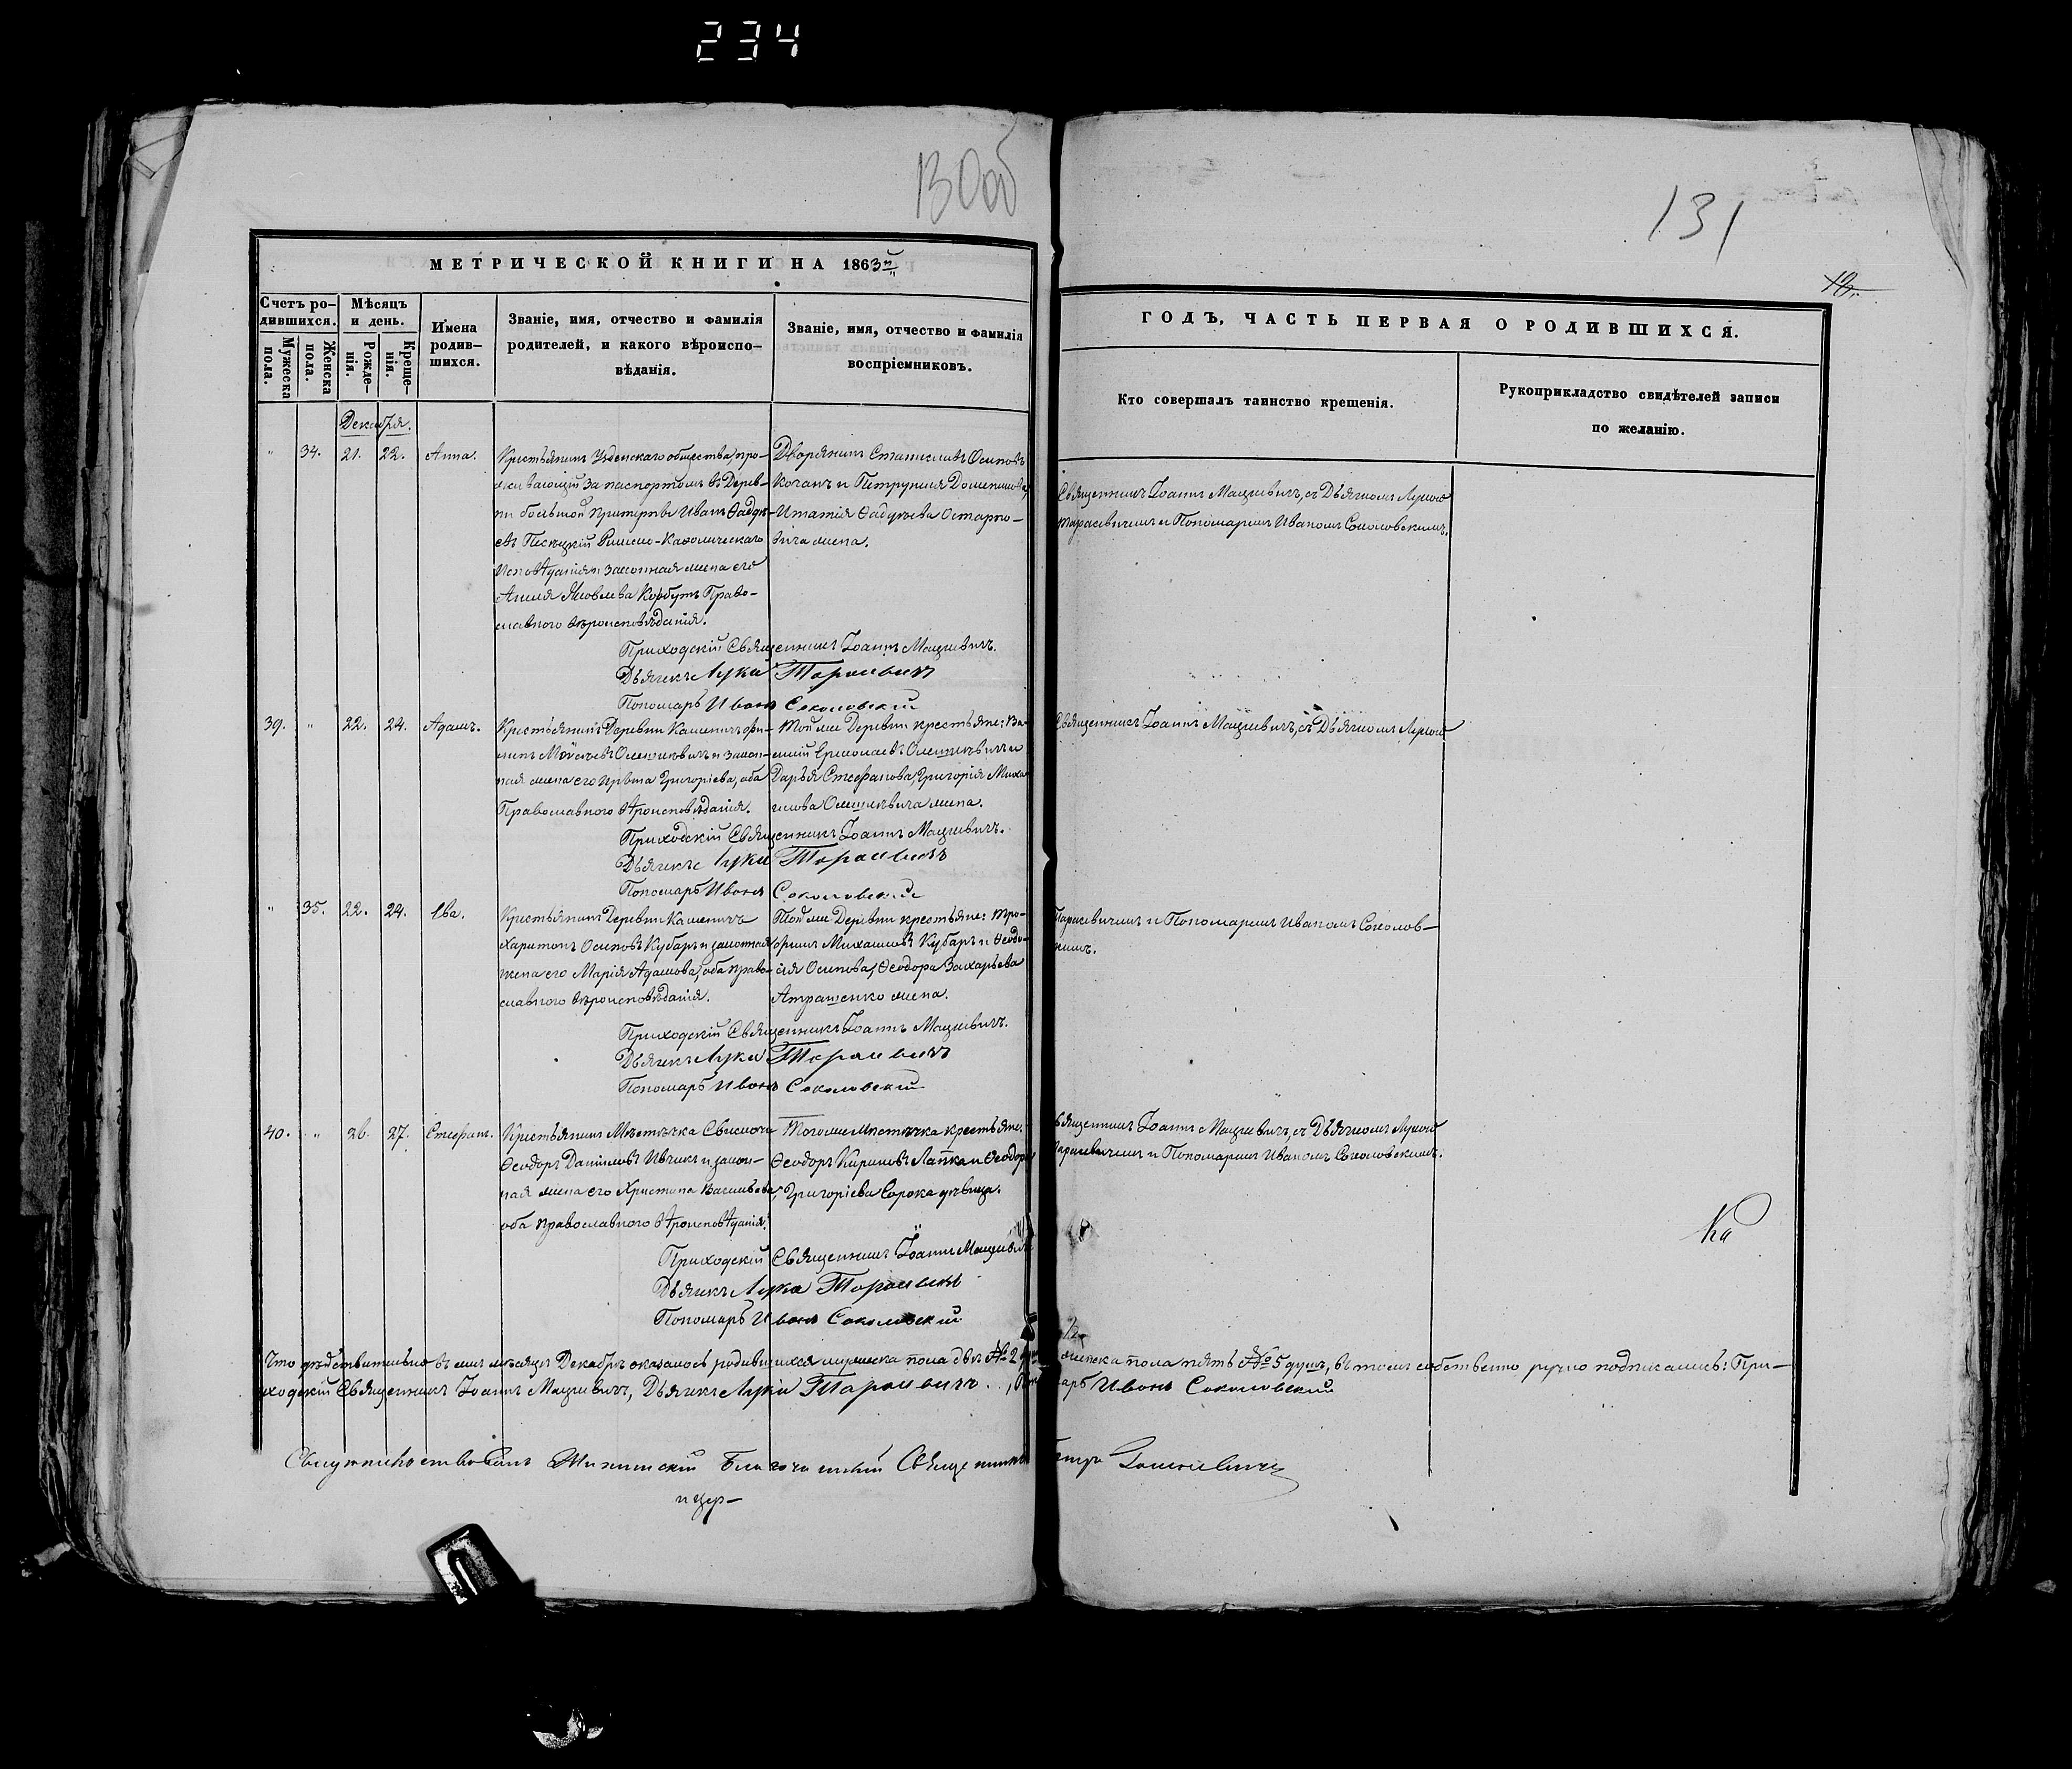 234
130об
131
МЕТРИЧЕСКОЙ КНИГИ НА 1863й
ГОДЪ, ЧАСТЬ ПЕРВАЯ О РОДИВШИХСЯ.
Счетъ ро-
дившихся.
Мужеска
пола.
Женска
пола.
Мѣсяцъ
и день.
Рожде-
нія.
Креще-
нія.
Имена
родив-
шихся.
Званіе, имя, отчество и фамилія
родителей, и какого вѣроиспо-
вѣданія.
Званіе, имя, отчество и фамилія
воспріемниковъ.
Кто совершалъ таинство крещенія.
Рукоприкладство свидѣтелей записи
по желанію.
Декабря.
" 34. 21. 22. Анна.
Крестьянинъ Узденскаго общества, про-
живающій за паспортомъ въ Дерев-
ни большой Иванъ Ѳадѣе-
въ Римско-Католическаго
Исповѣданія и законная жена его
Яковлева Корбутъ Право-
славного вѣроисповѣданія.
Дворянинъ Станиславъ Осиповъ
и
Игнатія Ѳадѣева
жена.
Священникъ Іоаннъ Мацкевичъ, съ Дьячкомъ Лукою
Тарасевичемъ и Пономаремъ Иваномъ Соколовскимъ.
Приходскій Священникъ Іоаннъ Мацкевичъ.
Дьячекъ Лука Тарасевичъ
Пономарь Иванъ Соколовскій
39. " 22. 24. Адамъ.
Крестьянинъ Деревни Каменичъ
Моисеевъ Олешкевичъ и закон-
ная жена его Григоріева, оба
Православного вѣроисповѣданія.
Той же Деревни крестьяне: Ва-
силій Ермолаевъ Олешкевичъ и
Дарья Стефанова, Григорія Миха-
илова Олешкевича жена.
Священникъ Іоаннъ Мацкевичъ, съ Дьячкомъ Лукою
Приходскій Священникъ Іоаннъ Мацкевичъ.
Дьячекъ Лука Тарасевичъ
Пономарь Иванъ Соколовскій
" 35. 22. 24. Ева.
Крестьянинъ Деревни Каменичъ
Харитонъ Осиповъ Кубаръ и законная
жена его Марія Адамова, оба право-
славного вѣроисповѣданія.
Той же Деревни крестьяне: Тро-
фимъ Михайловъ Кубаръ и Ѳеодо-
сія Осипова, Ѳеодора Захарьева
Атрашенко жена.
Тарасевичемъ и Пономаремъ Иваномъ Соколов-
скимъ.
Приходскій Священникъ Іоаннъ Мацкевичъ.
Дьячекъ Лука Тарасевичъ
Пономарь Иванъ Соколовскій
40. " 26. 27. Стефанъ.
Крестьянинъ Мѣстечка Свислочи
Ѳеодоръ Даниловъ Ивчикъ и закон-
ная жена его Христина Васильева,
оба православного вѣроисповѣданія.
Того же Мѣстечка крестьяне:
Ѳеодоръ Кириловъ Лапка и Ѳеодора
Григоріева Сорока дѣвица.
Священникъ Іоаннъ Мацкевичъ, съ Дьячкомъ Лукою
Тарасевичемъ и Пономаремъ Иваномъ Соколовскимъ.
Приходскій Священникъ Іоаннъ Мацкевичъ
Дьячекъ Лука Тарасевичъ
Пономарь Иванъ Соколовскій
Что дѣйствительно въ семъ мѣсяцѣ Декабрѣ оказалось родившихся мужеска пола двѣ № 2 женска пола пять № 5 душъ, въ томъ собственно ручно подписались: При-
ходскій Священникъ Іоаннъ Мацкевичъ, Дьячекъ Лука Тарасевичъ, Пономарь Иванъ Соколовскій
Свидѣтельствовалъ Благочинный Священникъ Петръ